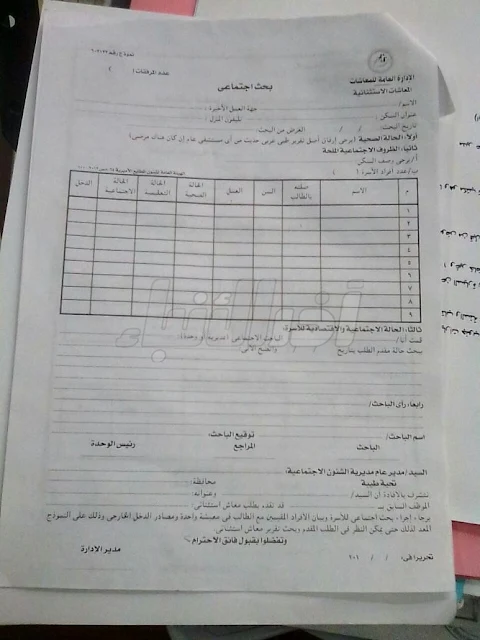 الإدارة العامة للمعاشات
المعاشات الاستثنائية
عدد المرفقات ( )
بحث اجتماعى
الاسم/
جهة العمل الأخيرة:
عنوان السكن:
تليفون المنزل:
تاريخ البحث: / /
الغرض من البحث:
أولاً: الحالة الصحية (يرجى إرفاق أصل تقرير طبى عربى حديث من أى مستشفى عام إن كان هناك مرضى)
ثانياً: الظروف الاجتماعية الملحة
أ/ يرجى وصف السكن
ب/ عدد أفراد الأسرة ( )
م الاسم صلته بالطالب السن العمل الحالة الصحية الحالة التعليمية الحالة الاجتماعية الدخل
١
٢
٣
٤
٥
٦
٧
٨
٩
آخر الأنباء
ثالثاً: الحالة الاجتماعية والاقتصادية للأسرة:
قمت أنا/ الباحث الاجتماعى (مديرية أو وحدة)
ببحث حالة مقدم الطلب بتاريخ واتضح الآتى:
رابعاً: رأى الباحث/
اسم الباحث/ توقيع الباحث:
الباحث المراجع رئيس الوحدة
السيد/ مدير عام مديرية الشئون الاجتماعية:
تحية طيبة محافظة:
نتشرف بالإفادة أن السيد/ وعنوانه:
الموظف السابق بـ قد تقدم بطلب معاش استثنائى
برجاء إجراء بحث اجتماعى للأسرة وبيان الأفراد المقيمين مع الطالب فى معيشة واحدة ومصادر الدخل الخارجى وذلك على النموذج
المعد لذلك حتى يمكن النظر فى الطلب المقدم وبحث تقرير معاش استثنائى.
وتفضلوا بقبول فائق الاحترام
تحريراً فى: / / ٢٠١
مدير الادارة